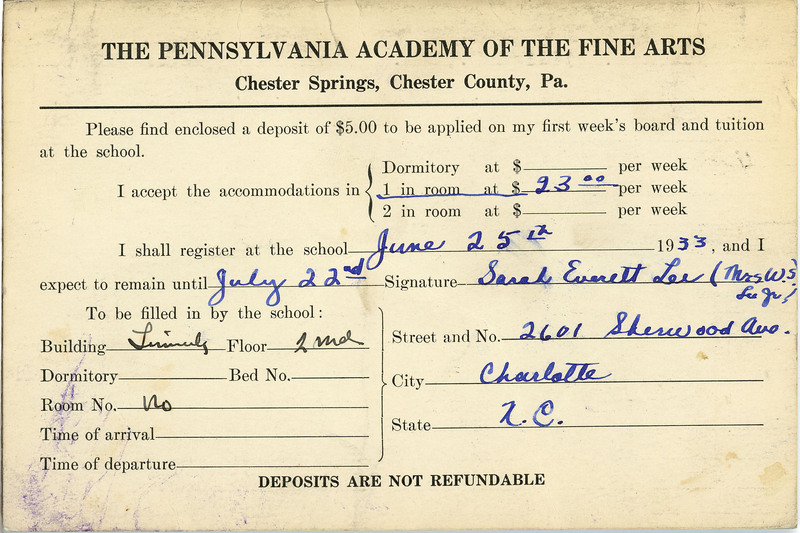 THE PENNSYLVANIA ACADEMY OF THE FINE ARTS
Chester Springs, Chester County, Pa.
Please find enclosed a deposit of $5.00 to be applied on my first week's board and tuition
at the school.
I accept the accommodations in
Dormitory at $ per week
1 in room at $ 23 00 per week
2 in room at $ per week
I shall register at the school June 25th 1933, and I
expect to remain until July 22nd Signature Sarah Everett Lee (Mrs W. S.
Lee Jr)
To be filled in by the school:
Building Floor 2nd
Dormitory Bed No.
Room No. No
Time of arrival
Time of departure
Street and No. 2601 Sherwood Ave.
City Charlotte
State N.C.
DEPOSITS ARE NOT REFUNDABLE